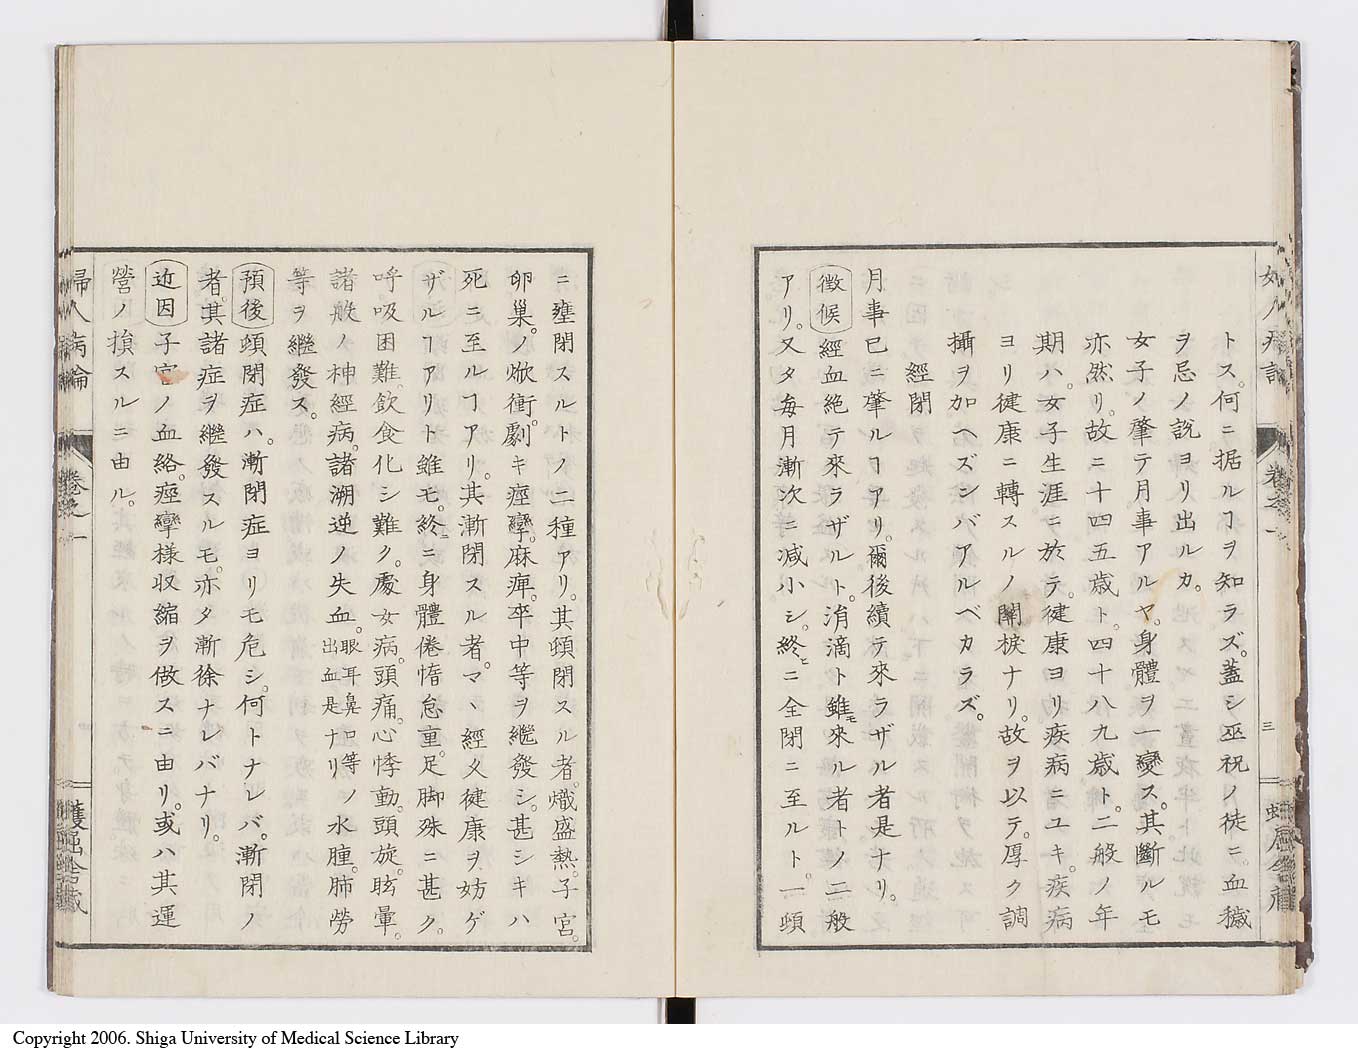 トス。何ニ据ルヿヲ知ラズ。蓋シ巫祝ノ徒ニ。血穢
ヲ忌ノ説ヨリ出ルカ。
女子ノ肇テ月事アルヤ。身體ヲ一變ス。其斷ルモ
亦然リ。故ニ十四五歳ト。四十八九歳ト。二般ノ年
期ハ。女子生涯ニ於テ。健康ヨリ疾病ニユキ。疾病
ヨリ健康ニ轉スルノ關棙ナリ。故ヲ以テ。厚ク調
攝ヲ加ヘズンバアルベカラズ。
經閉
月事已ニ肇ルヿアリ。爾後續テ來ラザル者是ナリ。
徴候 經血絶テ來ラザルト。涓滴ト雖モ來ル者トノ二般
アリ。又タ毎月漸次ニ減小シ。終ニ全閉ニ至ルト。一頓
ニ壅閉スルトノ二種アリ。其頓閉スル者。熾盛熱。子宮。
卵巢。ノ焮衝。劇キ痙攣。麻痺。卒中等ヲ繼發シ。甚シキハ
死ニ至ルヿアリ。其漸閉スル者。マヽ經久健康ヲ妨ゲ
ザルヿアリト雖モ。終ニ身體倦惰怠重。足脚殊ニ甚ク。
呼吸困難。飲食化シ難ク。處女病。頭痛。心悸動。頭旋。眩暈。
諸般ノ神經病。諸溯逆ノ失血。眼耳鼻口等ノ出血是ナリ 水腫。肺勞
等ヲ繼發ス。
預後 頓閉症ハ。漸閉症ヨリモ危シ。何トナレバ。漸閉ノ
者。其諸症ヲ繼發スルモ。亦タ漸徐ナレバナリ。
近因 子宮ノ血絡。痙攣樣收縮ヲ做スニ由リ。或ハ其運
營ノ損スルニ由ル。
婦人病論 卷之一